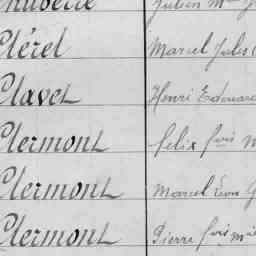 Julien M
Clérel Marcel Jules
Clavet Henri Edouard
Clermont felix fois M
Clermont Marcel Léon G
Clermont Pierre fois Mie